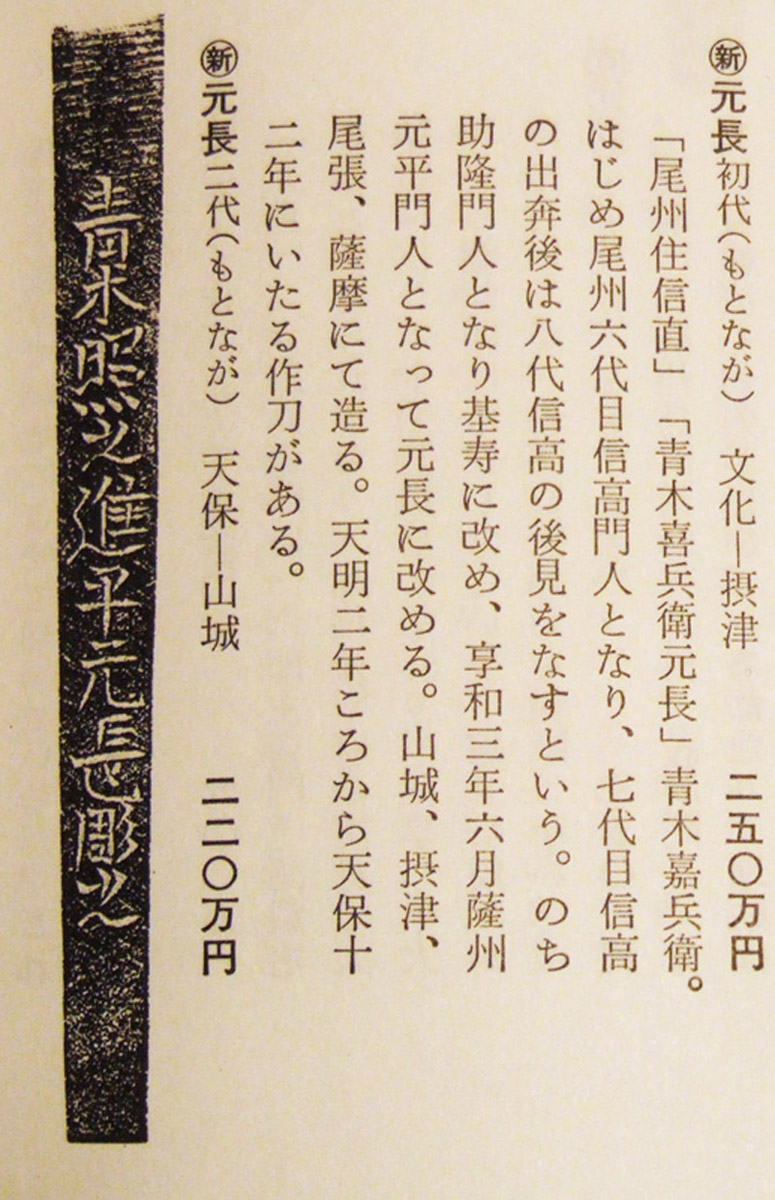 ㊟新元長初代(もとなが) 文化―摂津 二五〇万円
「尾州住信直」「青木喜兵衛元長」青木嘉兵衛。
はじめ尾州六代目信高門人となり、七代目信高
の出奔後は八代信高の後見をなすという。のち
助隆門人となり基寿に改め、享和三年六月薩州
元平門人となって元長に改める。山城、摂津、
尾張、薩摩にて造る。天明二年ころから天保十
二年にいたる作刀がある。
新元長二代(もとなが) 天保―山城 二二〇万円
青木照之進平元長彫之